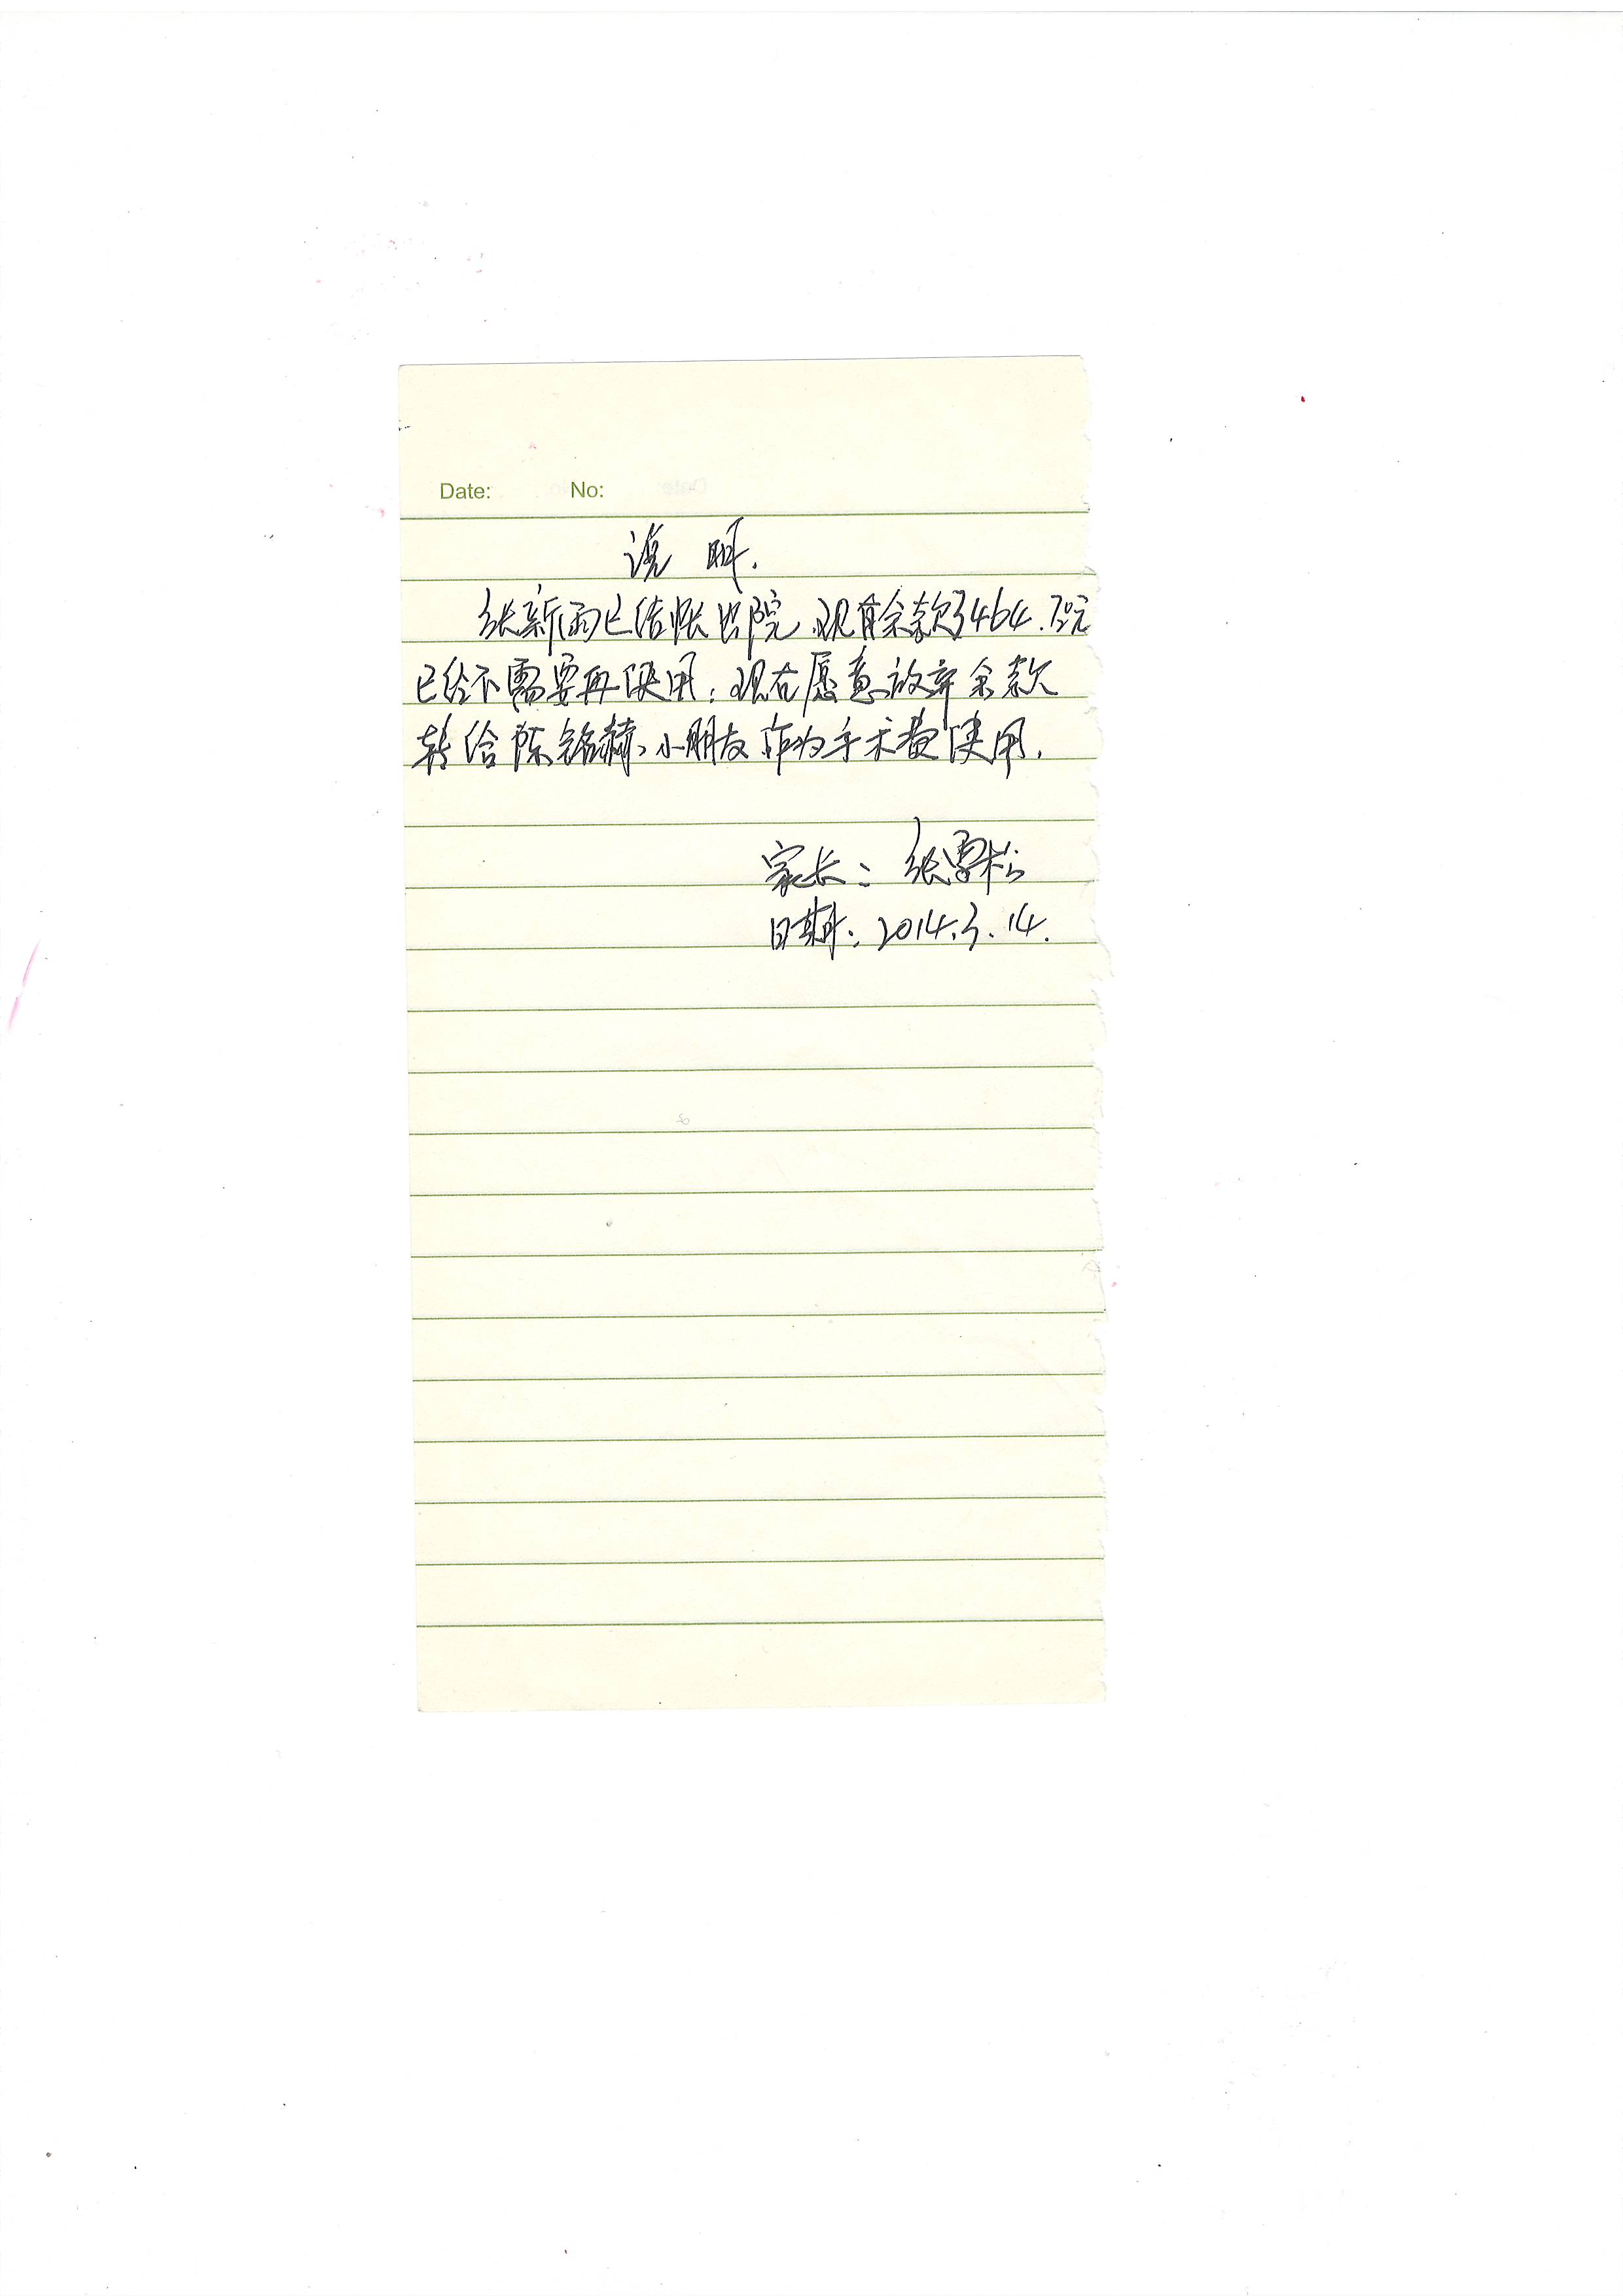 Date: No:
说 明.
张新雨已结帐出院,现有余款3464.72元
已经不需要再使用;现在愿意放弃余款
转给陈铭赫小朋友作为手术费使用.
家长:张雪松
日期:2014.3.14.